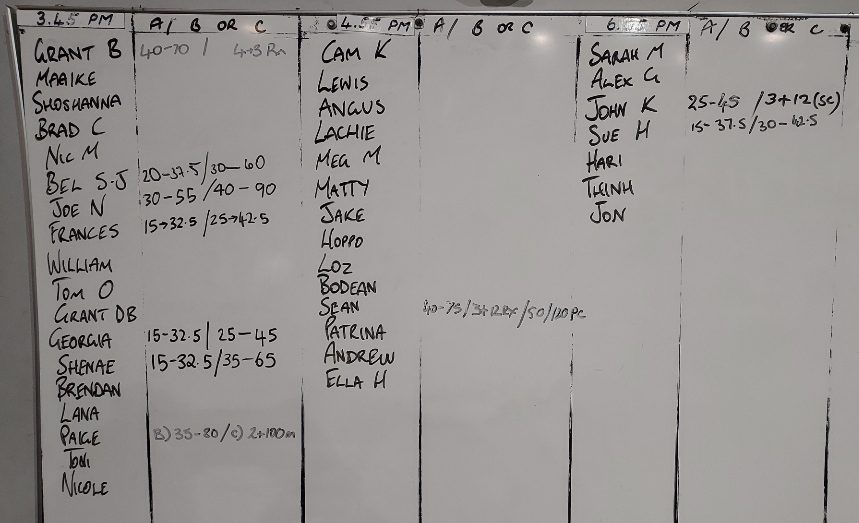 3.45 PM A/ B OR C
GRANT B 40-70 / 4+3 Rn
MAAIKE
SHOSHANNA
BRAD C
NIC M
BEL S-J 20-37.5/30-60
JOE N 30-55/40-90
FRANCES 15→32.5/25→42.5
WILLIAM
TOM O
GRANT DB
GEORGIA 15-32.5/25-45
SHENAE 15-32.5/35-65
BRENDAN
LANA
PAIGE B) 35-80/C) 2+100m
TONI
NICOLE
PM A/ B OR C
CAM K
LEWIS
ANGUS
LACHIE
MEG M
MATTY
JAKE
HOPPO
LOZ
BODEAN
SEAN 40-75/
PATRINA
ANDREW
ELLA H
PM A/ B OR C
SARAH M
ALEX G
JOHN K 25-45 /3+12(SC)
SUE H 15-37.5/30-42.5
HARI
THINH
JON